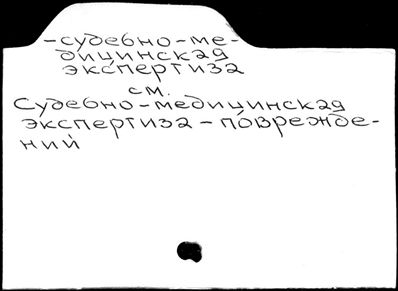 -судебно-ме-
дицинская
экспертиза
см.
Судебно-медицинская
экспертиза - поврежде-
ний